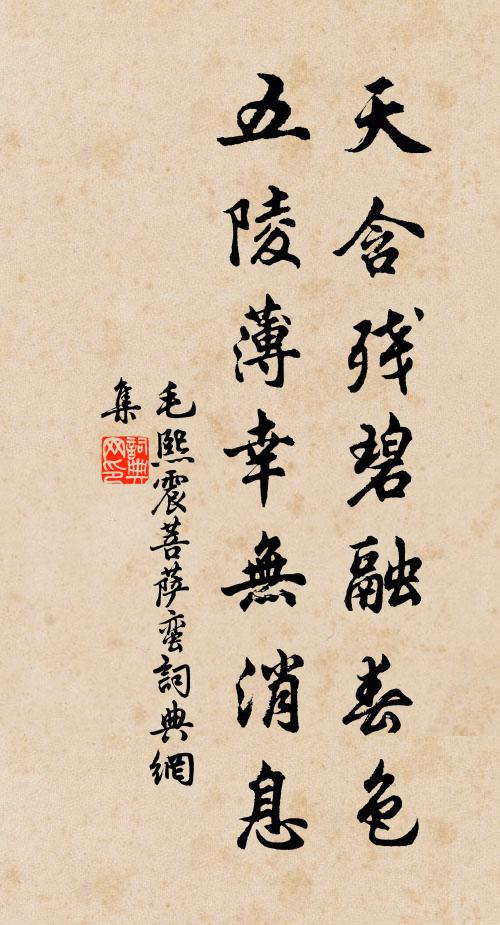 天含残碧融春色
五陵薄幸無消息
毛熙震菩萨蛮詞典網
集
詞典
网印